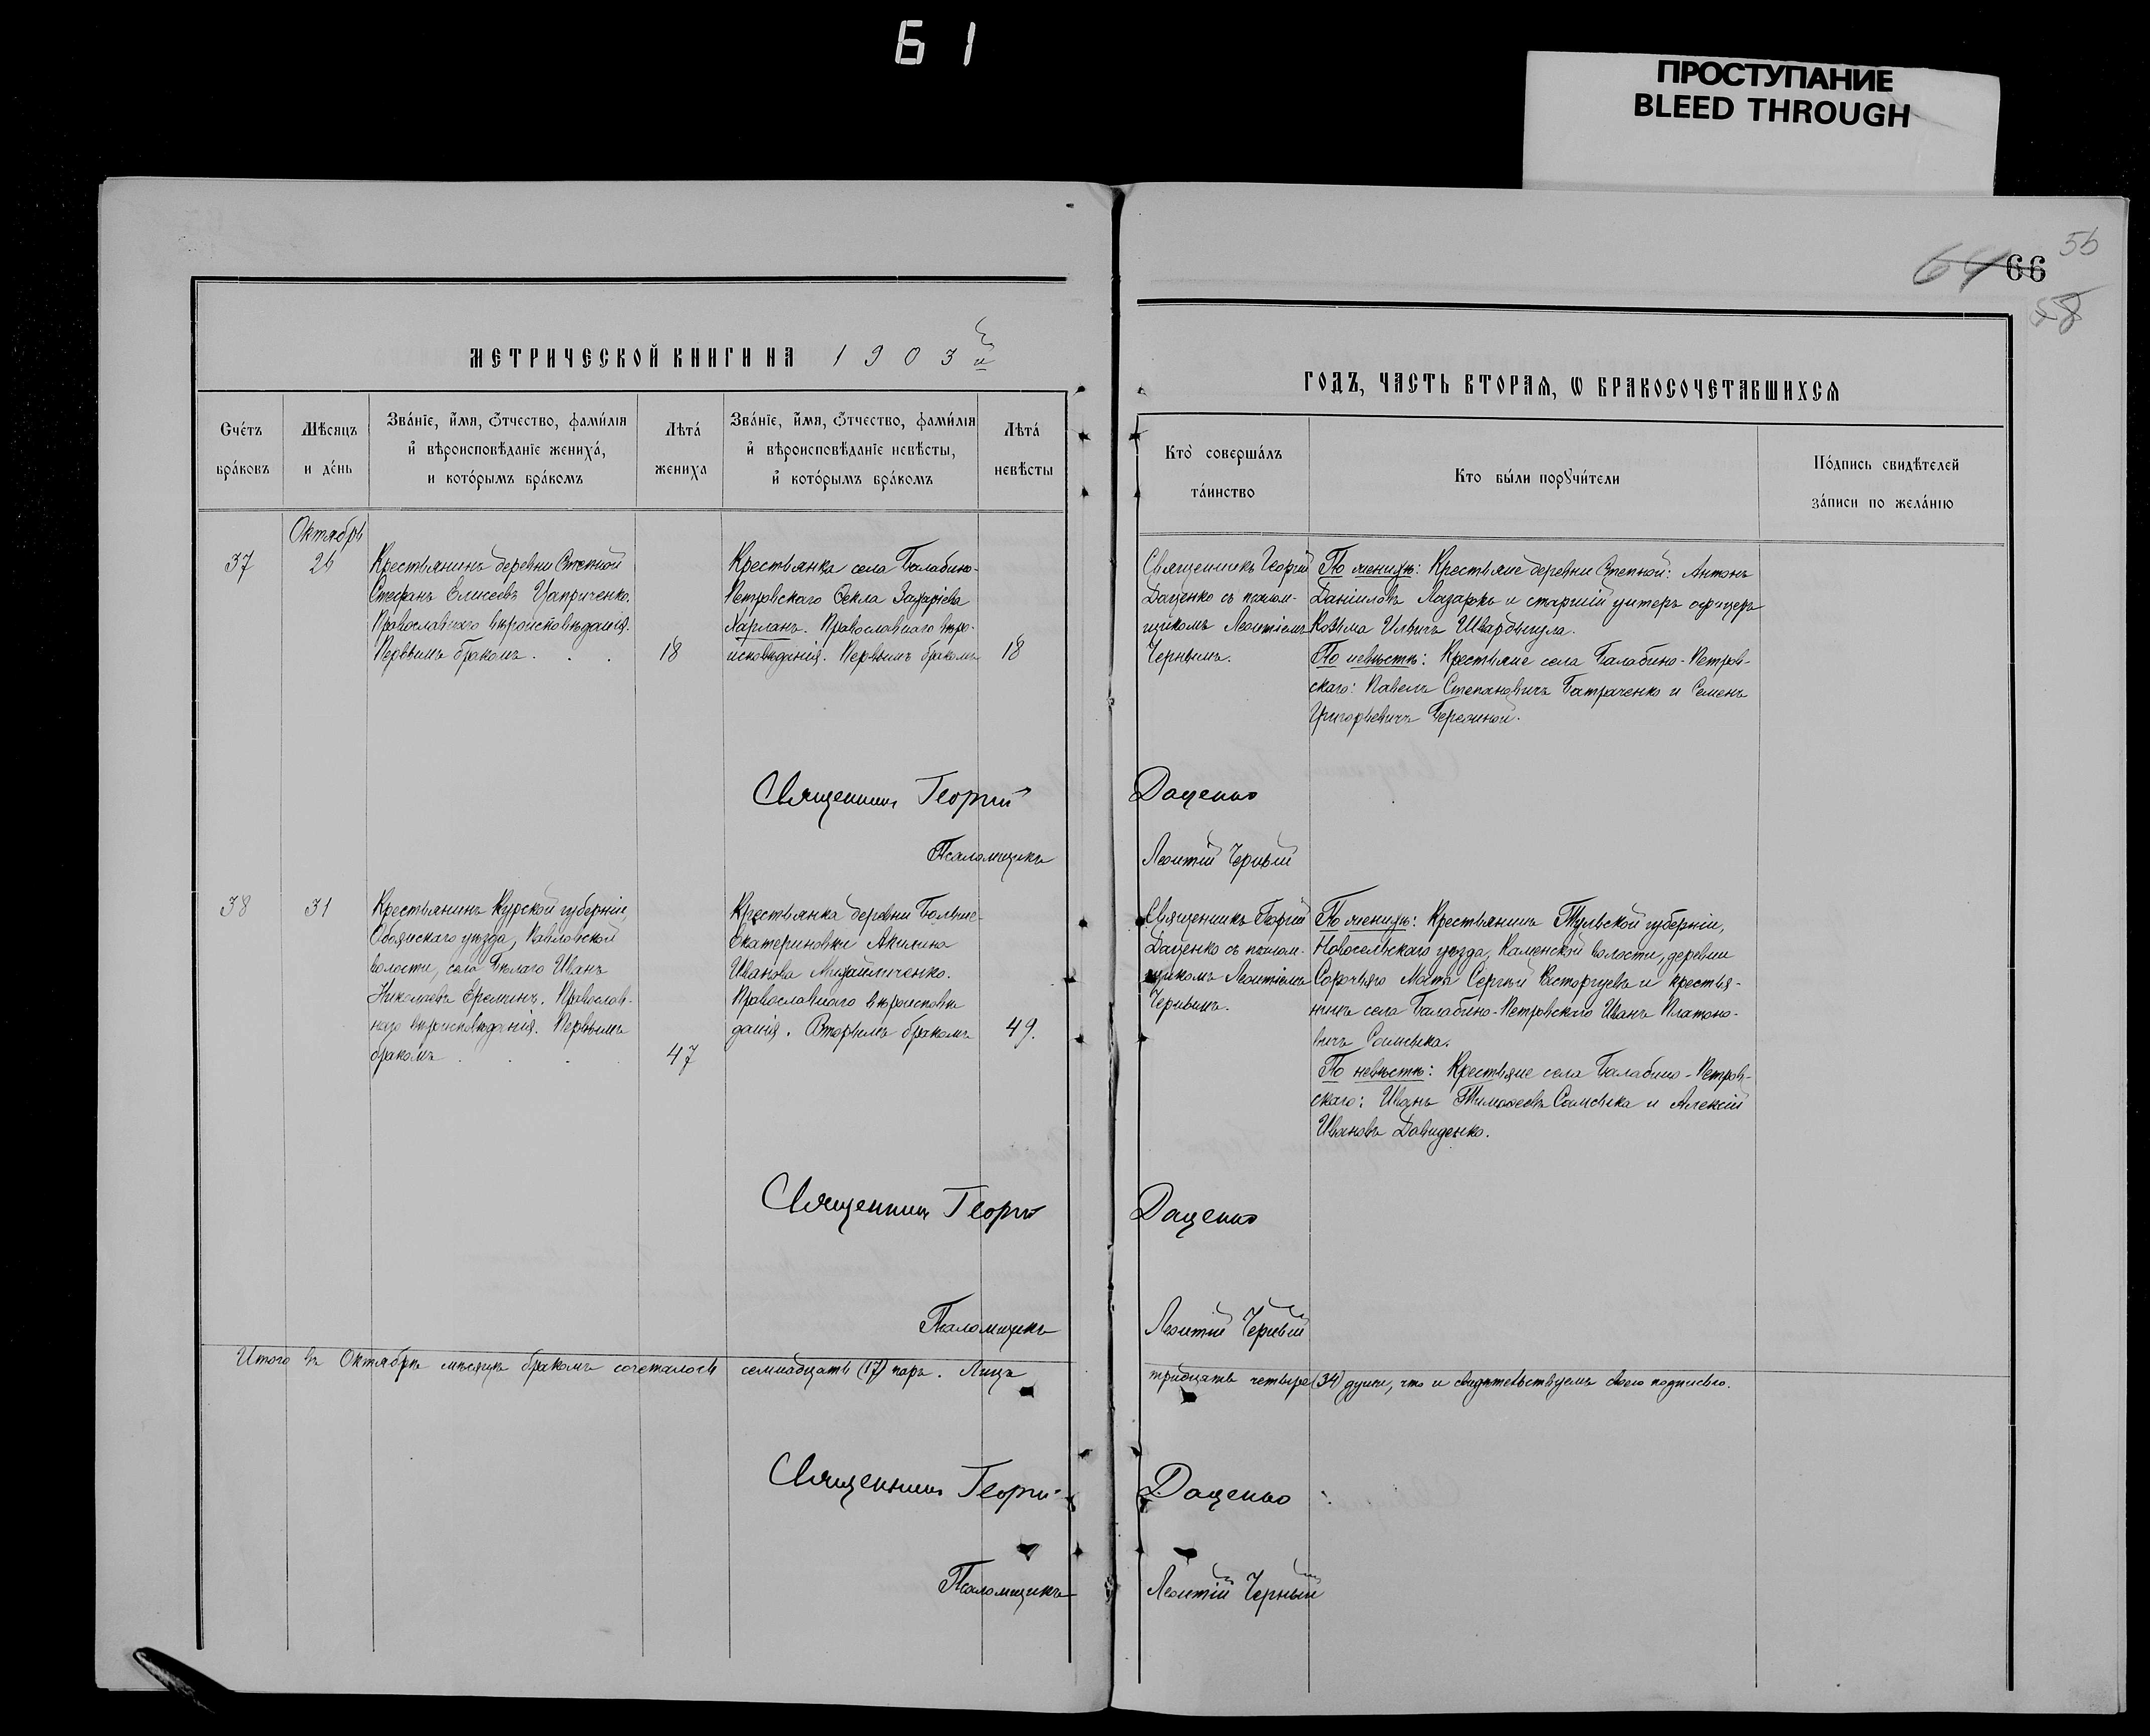 Б 1
ПРОСТУПАНИЕ
BLEED THROUGH
55
64 66
58
МЕТРИЧЕСКОЙ КНИГИ НА 1903й
Счётъ браковъ
Мѣсяцъ и день
Званіе, имя, отчество, фамилія и вѣроисповѣданіе жениха, и которымъ бракомъ
Лѣта жениха
Званіе, имя, отчество, фамилія и вѣроисповѣданіе невѣсты, и которымъ бракомъ
Лѣта невѣсты
37
Октябрь
26
Крестьянинъ деревни Степной
Стефанъ Елисеевъ Цаприченко.
Православнаго вѣроисповѣданія.
Первымъ бракомъ . . .
18
Крестьянка села Балабино-
Петровскаго Ѳекла Захаріева
Харланъ. Православнаго вѣро-
исповѣданія. Первымъ бракомъ
18
Священникъ Георгій
Псаломщикъ
38
31
Крестьянинъ Курской губерніи,
Обоянскаго уѣзда, Павловской
волости, села Бѣлаго Иванъ
Николаевъ Ереминъ. Православ-
наго вѣроисповѣданія. Первымъ
бракомъ . . .
47
Крестьянка деревни Больше-
Екатериновки Акилина
Иванова Михайличенко.
Православнаго вѣроисповѣ
данія. Вторымъ бракомъ
49.
Священникъ Георгій
Псаломщикъ
Итого въ Октябрѣ мѣсяцѣ бракомъ сочеталось семнадцать (17) паръ. Лицъ
Священникъ Георгій
Псаломщикъ
ГОДЪ, ЧАСТЬ ВТОРАЯ, Ѡ БРАКОСОЧЕТАВШИХСЯ
Кто совершалъ таинство
Кто были поручители
Подпись свидѣтелей записи по желанію
Священникъ Георгій
Даценко съ псалом-
щикомъ Леонтіемъ
Чернымъ.
По женихѣ: Крестьяне деревни Степной: Антонъ
Даніиловъ Лазаровъ и старшій унтеръ офицеръ
Козьма Ильичъ Швардыгула.
По невѣстѣ: Крестьяне села Балабино-Петров-
скаго: Павелъ Степановичъ Батраченко и Семенъ
Григорьевичъ Бережной.
Даценко
Леонтій Черный
Священникъ Георгій
Даценко съ псалом-
щикомъ Леонтіемъ
Чернымъ.
По женихѣ: Крестьянинъ Тульской губерніи,
Новосельскаго уѣзда, Каменской волости, деревни
Сорочьяго Моста Сергѣй Расторгуевъ и крестья-
нинъ села Балабино-Петровскаго Иванъ Платоно-
вичъ Сомсѣка.
По невѣстѣ: Крестьяне села Балабино-Петров-
скаго: Иванъ Тимоѳеевъ Сомсѣка и Алексій
Ивановъ Давиденко.
Даценко
Леонтій Черный
тридцать четыре (34) души, что и свидѣтельствуемъ своею подписью.
Даценко
Леонтій Черный